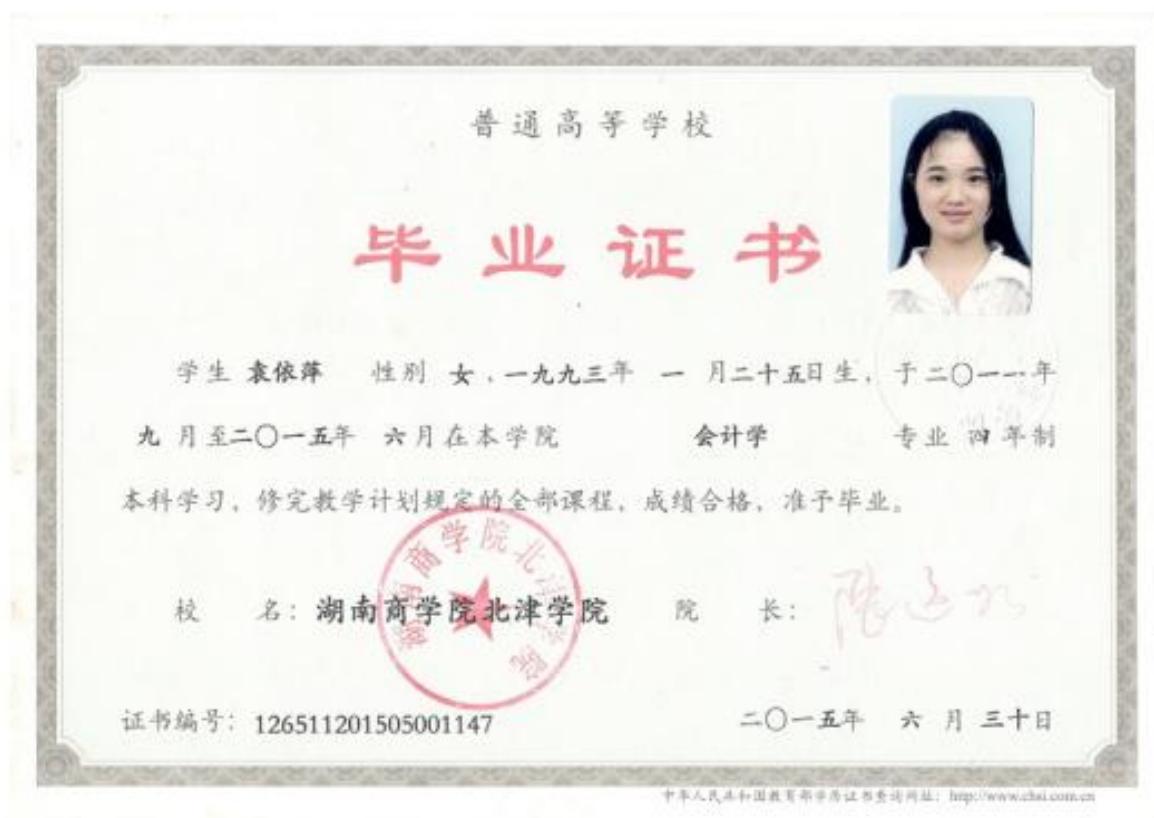 普通高等学校
毕业证书
学生 袁依萍 性别 女，一九九三年 一 月二十五日生，于二〇一一年
九 月至二〇一五年 六月在本学院 会计学 专业 四 年制
本科学习，修完教学计划规定的全部课程，成绩合格，准予毕业。
湖南商学院北津学院
校 名：湖南商学院北津学院 院 长：
证书编号：126511201505001147 二〇一五年 六 月 三十日
中华人民共和国教育部学历证书查询网址：http://www.chsi.com.cn